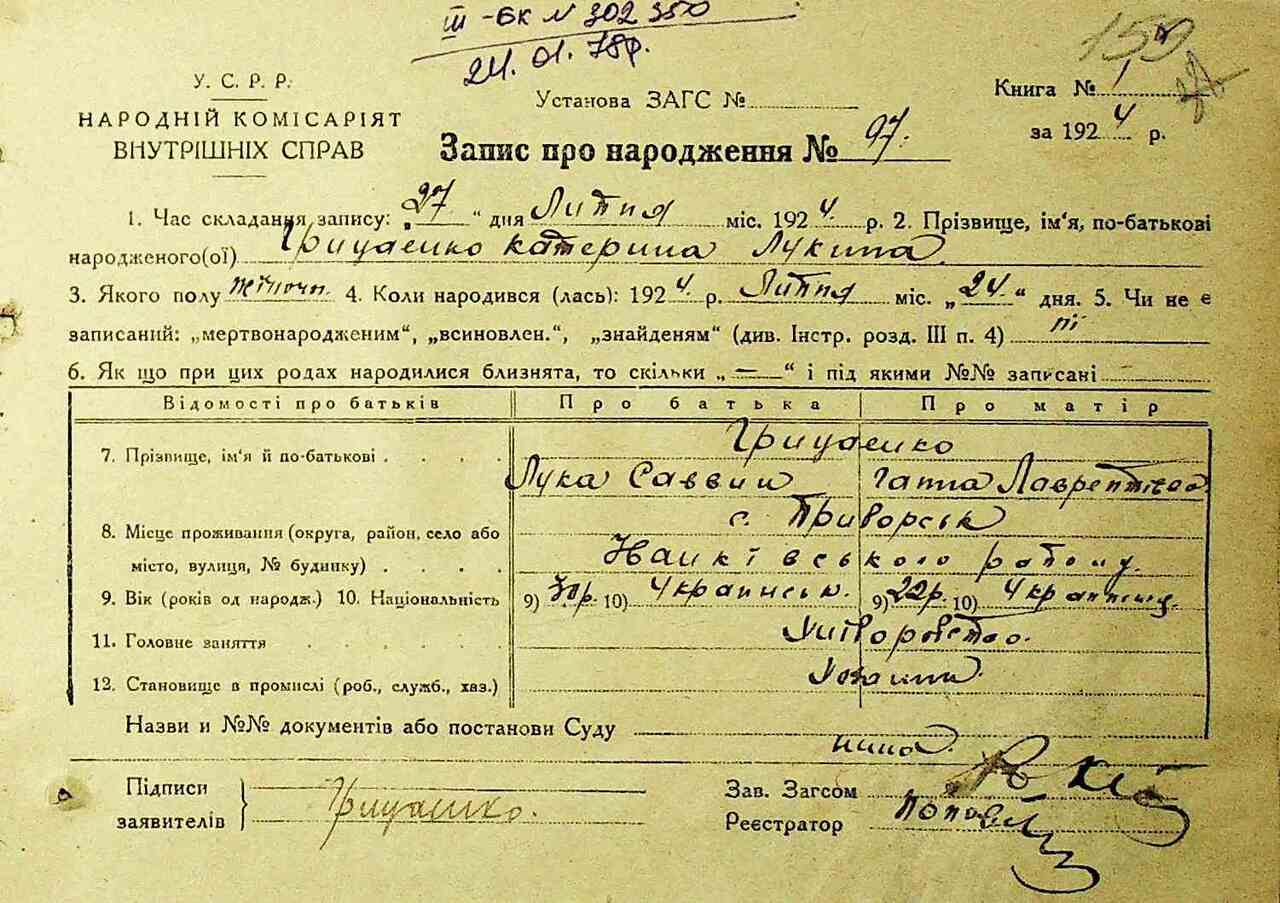 III -БК N 302350
24.01.78р.
У. С. Р. Р.
НАРОДНІЙ КОМІСАРІЯТ
ВНУТРІШНІХ СПРАВ
Установа ЗАГС №
Книга № 1
за 1924 р.
Запис про народження № 97.
1. Час складання запису: „27" дня Липня міс. 1924 р. 2. Прізвище, ім'я, по-батькові
народженого(ої) Грицаенко Катерина Лукина
3. Якого полу жіноч. 4. Коли народився (лась): 1924 р. Липня міс. „24" дня. 5. Чи не є
записаний: „мертвонародженим", „всиновлен.", „знайденям" (див. Інстр. розд. III п. 4) ні
6. Як що при цих родах народилися близнята, то скільки „—" і під якими №№ записані
Відомості про батьків Про батька Про матір
Грицаенко
7. Прізвище, ім'я й по-батькові . . . .
Лука Саввич Ганна Лаврентієва
с. Приворськ
8. Місце проживання (округа, район, село або
місто, вулиця, № будинку) . . . .
району.
9. Вік (років од народж.) 10. Національність 9) 30р. 10) Українськ. 9) 22р. 10)
11. Головне заняття . . . . . Хліборобство.
12. Становище в промислі (роб., служб., хаз.)
Назви и №№ документів або постанови Суду
нема
Підписи
заявителів
Грицаенко.
Зав. Загсом
Реєстратор